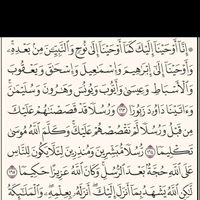 ۞ إِنَّآ أَوْحَيْنَآ إِلَيْكَ كَمَآ أَوْحَيْنَآ إِلَىٰ نُوحٍ وَٱلنَّبِيِّـۧنَ مِنۢ بَعْدِهِۦۚ
وَأَوْحَيْنَآ إِلَىٰٓ إِبْرَٰهِيمَ وَإِسْمَٰعِيلَ وَإِسْحَٰقَ وَيَعْقُوبَ
وَٱلْأَسْبَاطِ وَعِيسَىٰ وَأَيُّوبَ وَيُونُسَ وَهَٰرُونَ وَسُلَيْمَٰنَۚ
وَءَاتَيْنَا دَاوُۥدَ زَبُورًا ١٦٣ وَرُسُلًا قَدْ قَصَصْنَٰهُمْ عَلَيْكَ
مِن قَبْلُ وَرُسُلًا لَّمْ نَقْصُصْهُمْ عَلَيْكَۚ وَكَلَّمَ ٱللَّهُ مُوسَىٰ
تَكْلِيمًا ١٦٤ رُّسُلًا مُّبَشِّرِينَ وَمُنذِرِينَ لِئَلَّا يَكُونَ لِلنَّاسِ
عَلَى ٱللَّهِ حُجَّةٌۢ بَعْدَ ٱلرُّسُلِۚ وَكَانَ ٱللَّهُ عَزِيزًا حَكِيمًا ١٦٥
لَّٰكِنِ ٱللَّهُ يَشْهَدُ بِمَآ أَنزَلَ إِلَيْكَۖ أَنزَلَهُۥ بِعِلْمِهِۦۖ وَٱلْمَلَٰٓئِكَةُ